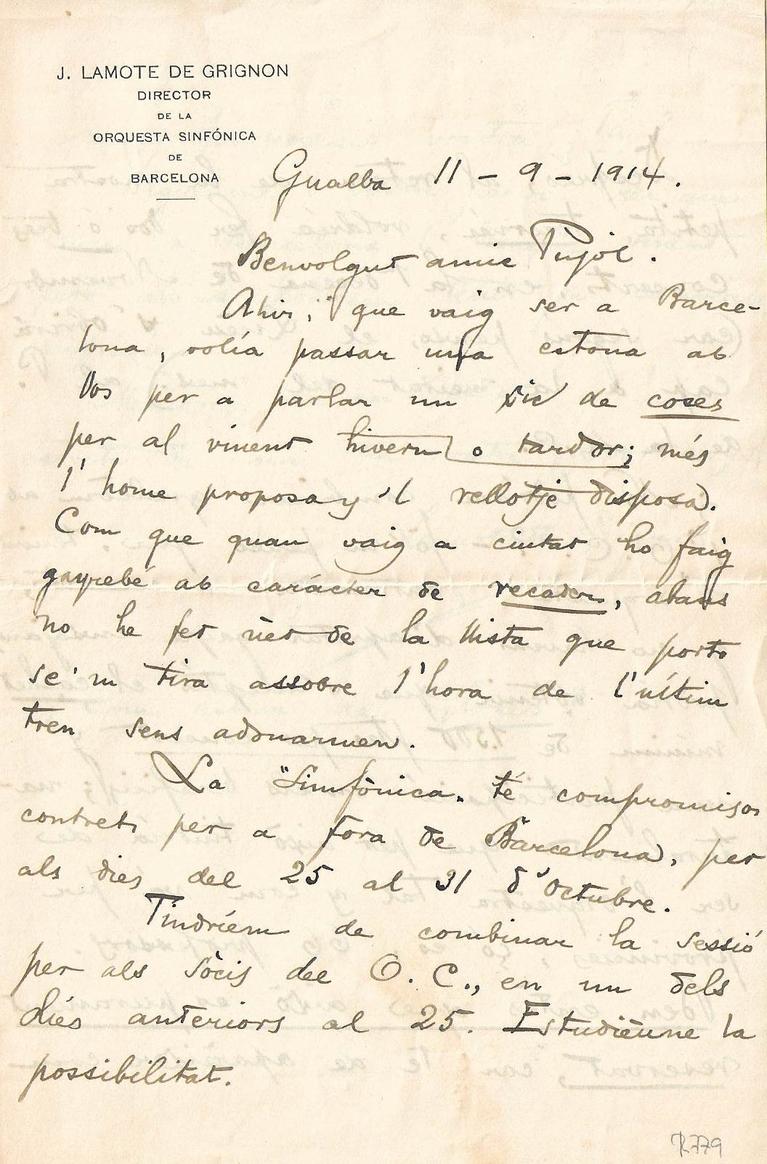 J. LAMOTE DE GRIGNON
DIRECTOR
DE LA
ORQUESTA SINFÓNICA
DE
BARCELONA
Gualba 11 - 9 - 1914.
Benvolgut amic Pujol.
Ahir, que vaig ser a Barce-
lona, volía passar una estona ab
Vos per a parlar un xic de coses
per al vinent hivern o tardor; més
l'home proposa y 'l rellotje disposa.
Com que quan vaig a ciutat ho faig
gayrebé ab carácter de recader, abans
no he fet net de la llista que porto
se'm tira assobre l'hora de l'últim
tren sens adonarmen.
La "Simfònica" té compromisos
contrets per a fora de Barcelona, per
als dies del 25 al 31 d'Octubre.
Tindríem de combinar la sessió
per als sòcis del O. C., en un dels
díes anteriors al 25. Estudièune la
possibilitat.
R.779